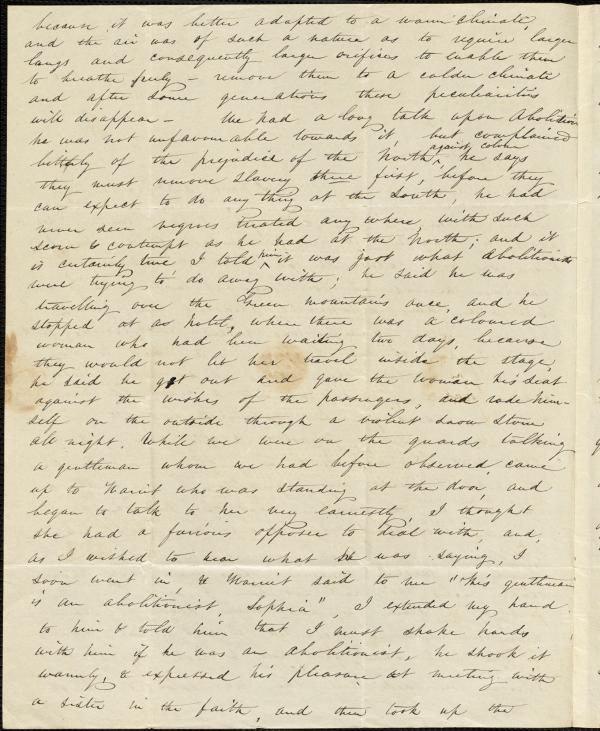 because it was better adapted to a warm climate,
and the air was of such a nature as to require larger
lungs and consequently larger orifices to enable them
to breathe freely – remove them to a colder climate
and after some generations these peculiarities
will disappear – We had a long talk upon Abolition
he was not unfavourable towards it, but complained
bitterly of the prejudice of the North against colour, he says
they must remove slavery there first, before they
can expect to do any thing at the South, he had
never seen negroes treated any where with such
scorn & contempt as he had at the North; and it
is certainly true I told him it was just what abolitionists
were trying to do away with; he said he was
travelling over the Green mountains once, and he
stopped at an hotel, where there was a coloured
woman who had been waiting two days, because
they would not let her travel inside the stage,
he said he got out and gave the woman his seat
against the wishes of the passengers, and rode him-
self on the outside through a violent snow storm
all night. While we were on the guards talking
a gentleman whom we had before observed, came
up to Harriet who was standing at the door, and
began to talk to her very earnestly, I thought
she had a furious opposer to deal with, and,
as I wished to hear what he was saying, I
soon went in, & Harriet said to me "this gentleman
is an abolitionist, Sophia", I extended my hand
to him & told him that I must shake hands
with him if he was an abolitionist, he shook it
warmly, & expressed his pleasure at meeting with
a sister in the faith, and then took up the